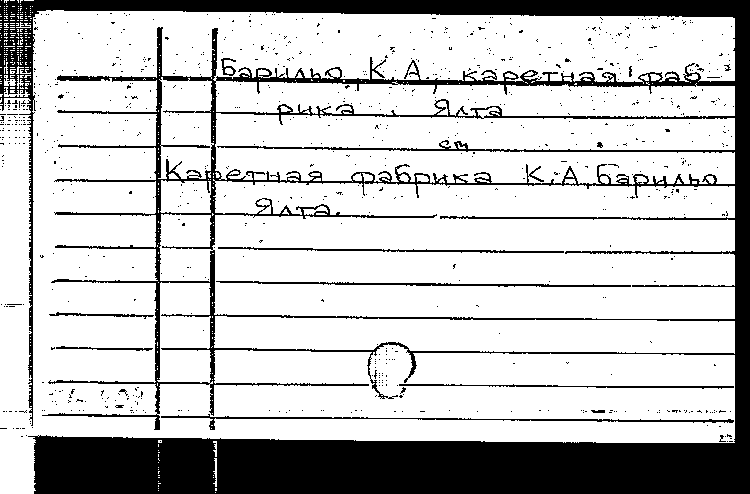 Барильо, К.А., каретная фаб-
рика. Ялта
см.
Каретная фабрика К.А. Барильо
Ялта.